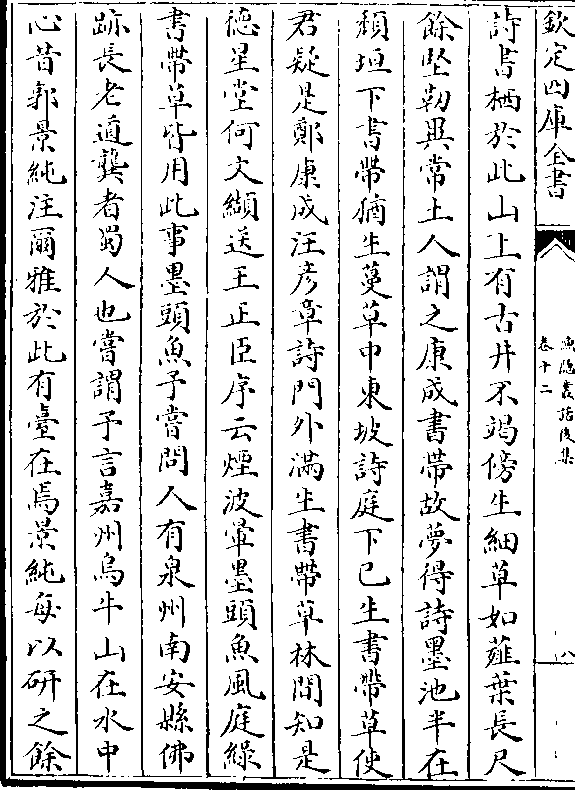 欽定四庫全書
漁隱叢話後集
卷十二
八
詩書栖於此山上有古井不竭傍生細草如薤葉長尺
餘堅韌異常土人謂之康成書帶故夢得詩墨池半在
頽垣下書帶猶生蔓草中東坡詩庭下已生書帶草使
君疑是鄭康成汪彦章詩門外滿生書帶草林間知是
徳星堂何文縝送王正臣序云煙波暈墨頭魚風庭緑
書帶草皆用此事墨頭魚予嘗問人有泉州南安縣佛
跡長老道龔者蜀人也嘗謂予言嘉州烏牛山在水中
心昔郭景純注爾雅於此有臺在焉景純每以研之餘